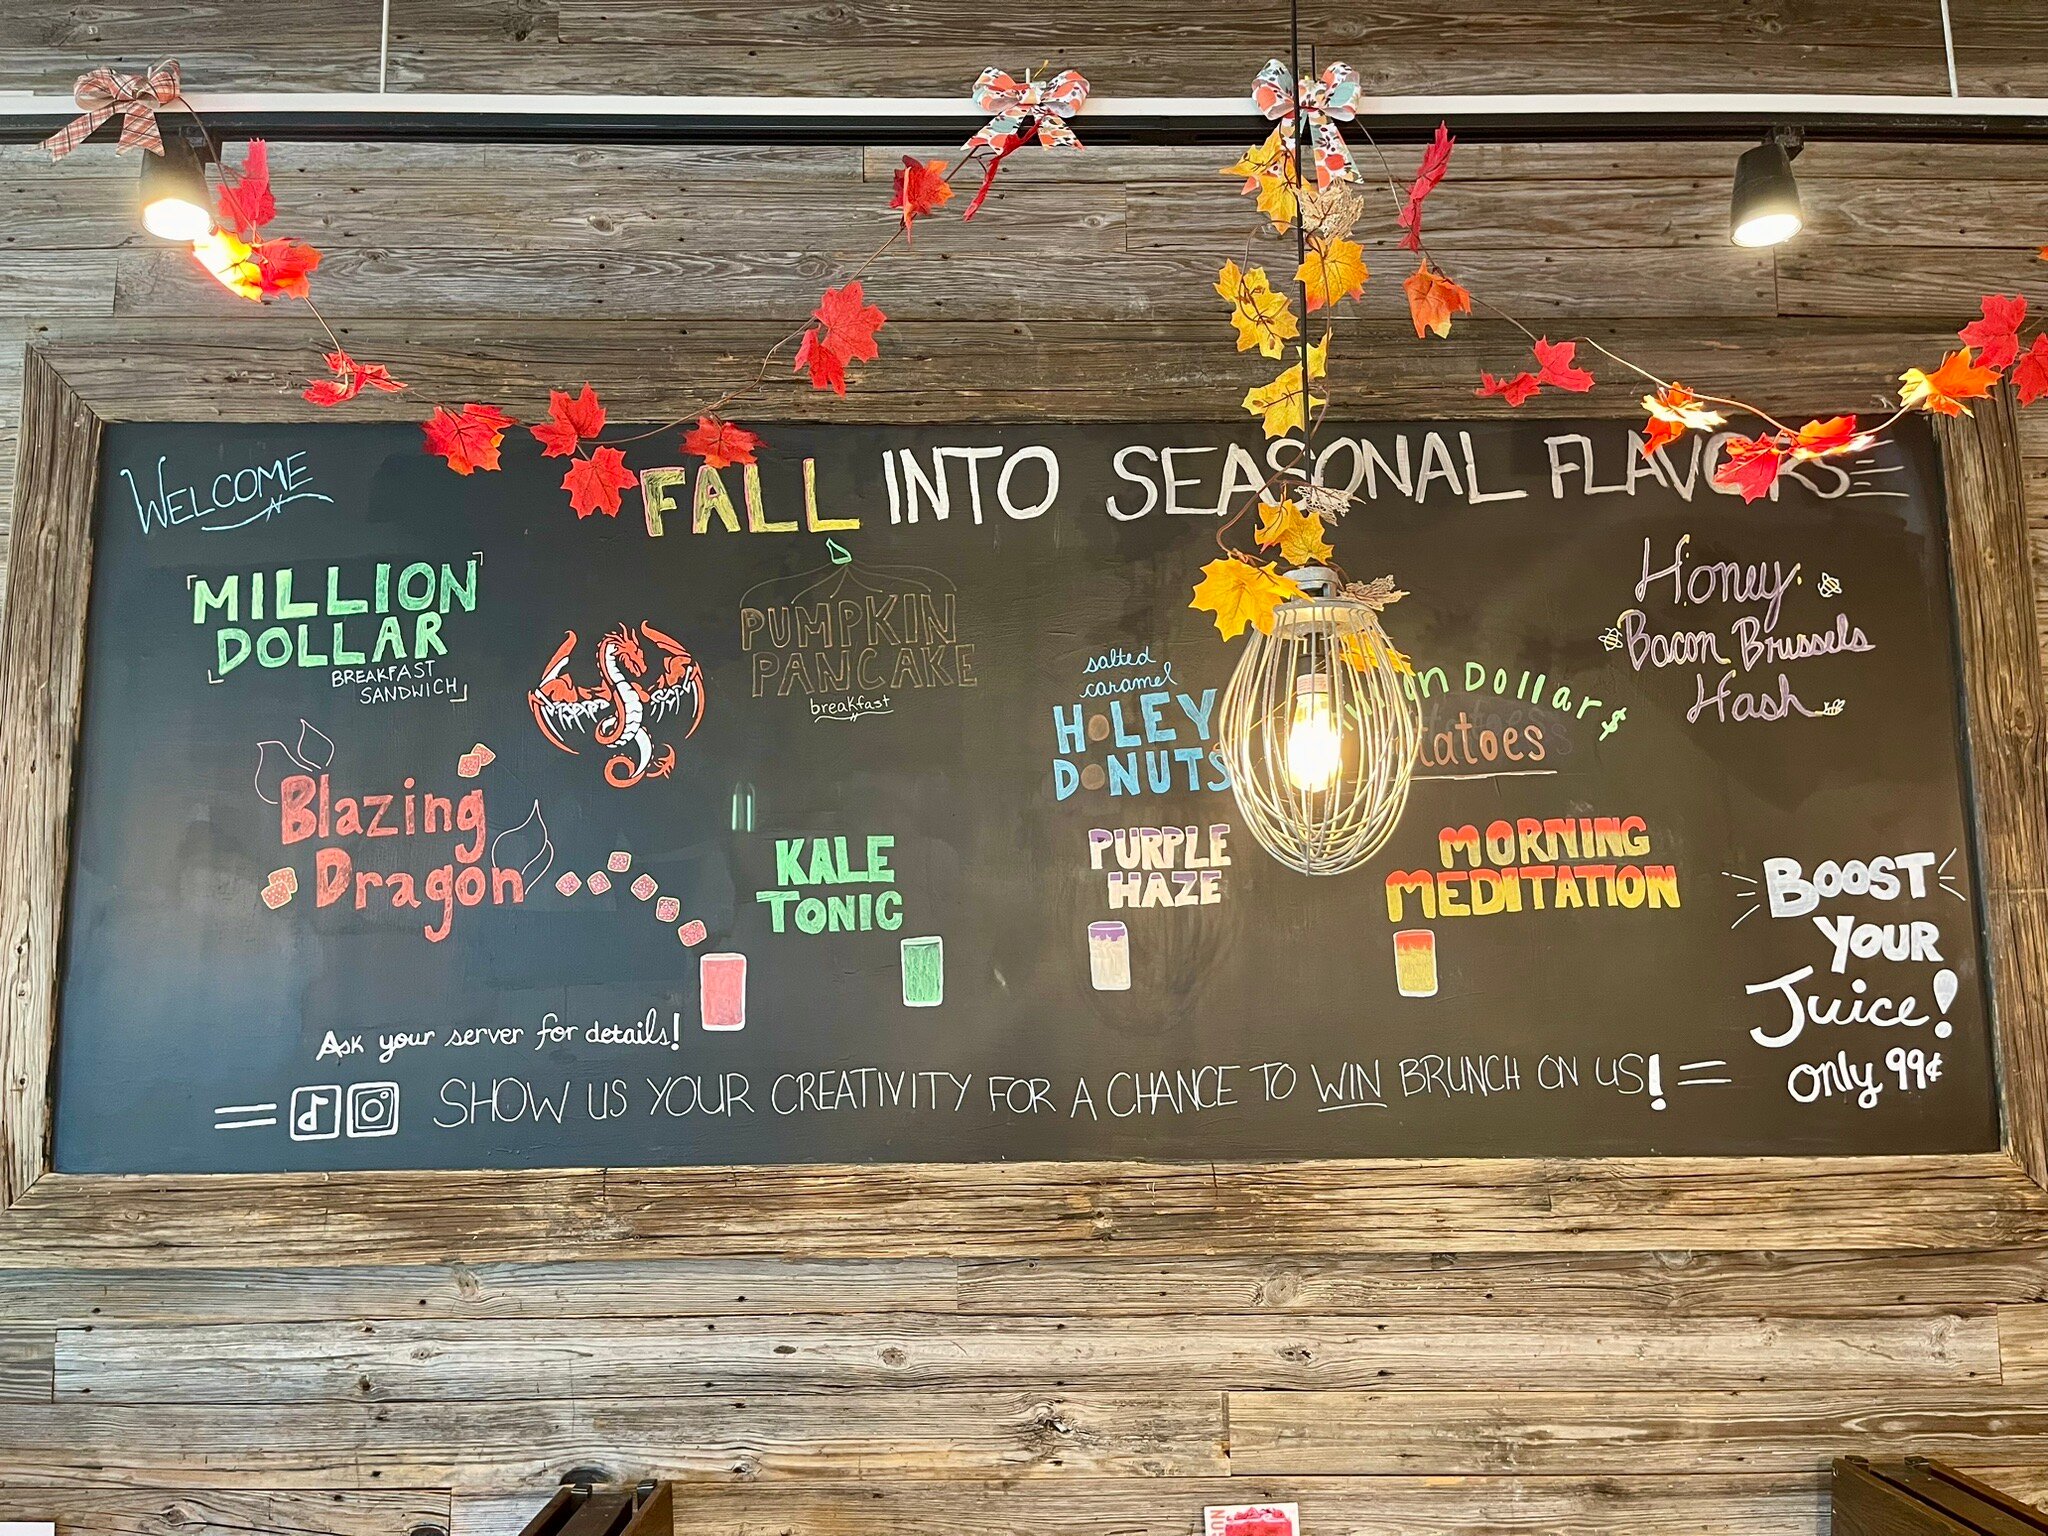 WELCOME
FALL INTO SEASONAL FLAVORS
MILLION
DOLLAR
BREAKFAST
SANDWICH
PUMPKIN
PANCAKE
breakfast
salted
caramel
HOLEY
DONUTS
Dollar$
Honey
Bacon Brussels
Hash
Blazing
Dragon
KALE
TONIC
PURPLE
HAZE
MORNING
MEDITATION
BOOST
YOUR
Juice!
only 99¢
Ask your server for details!
SHOW US YOUR CREATIVITY FOR A CHANCE TO WIN BRUNCH ON US!